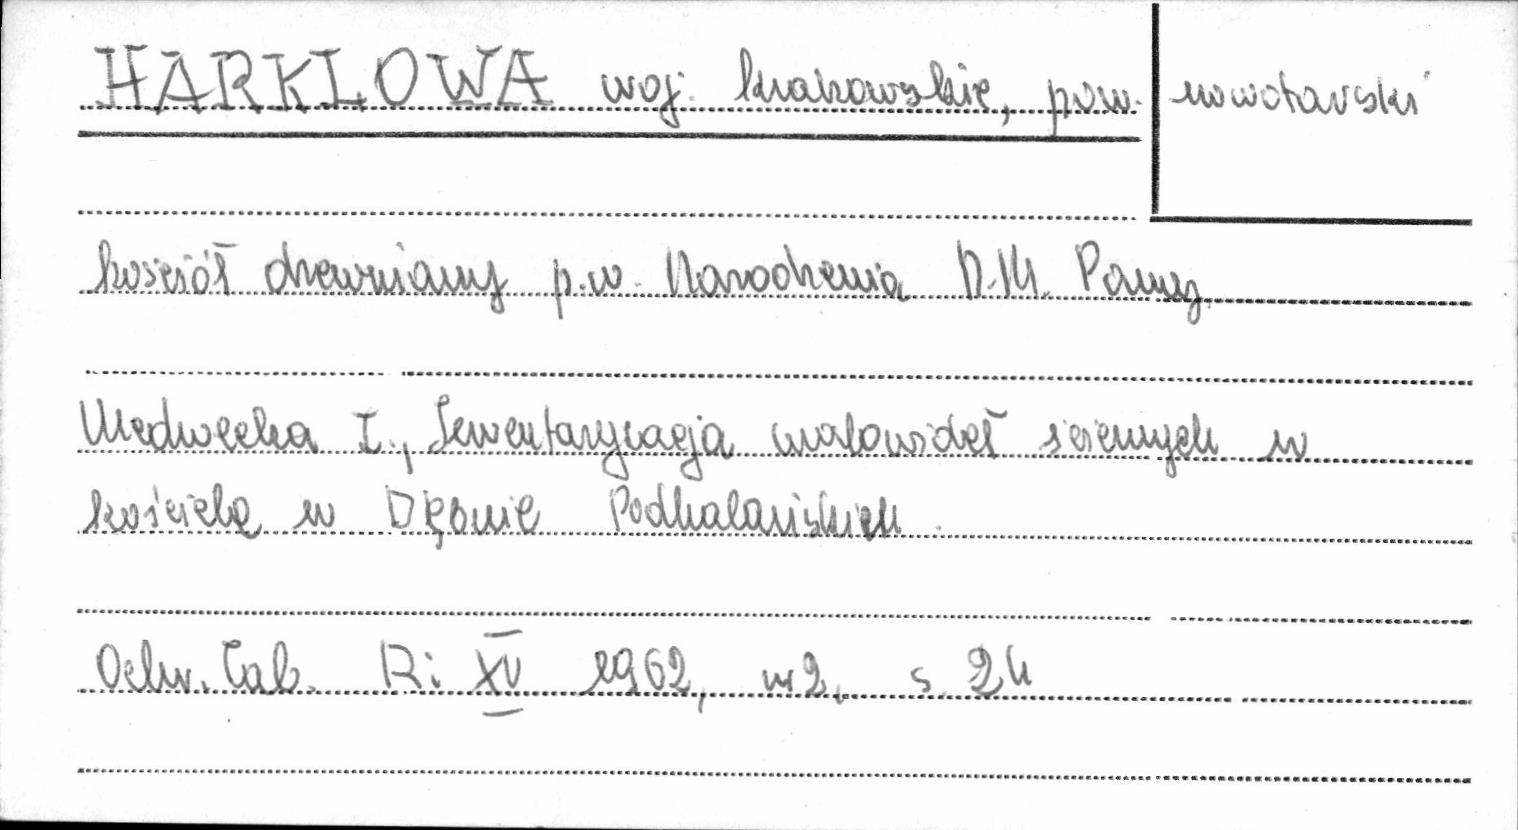 HARKLOWA woj. krakowskie, pow. nowotarski
kościół drewniany p.w. Narodzenia N.M. Panny
Medwecka I., Inwentaryzacja malowideł ściennych w
kościele w Dębnie Podhalańskich.
Ochr. Zab. R: XV 1962, nr 2, s. 24